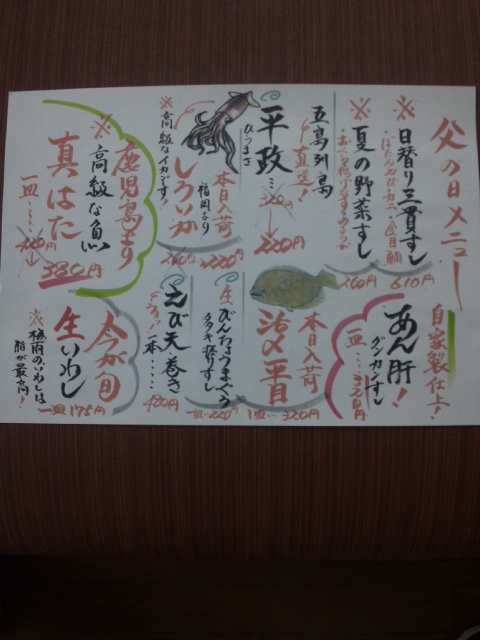 父の日メニュー
※日替り三貫すし
610円
※夏の野菜すし
260円
五島列島
より直送!
平政…
ひらまさ
220円
本日入荷
福岡より
しろいか
※高級なイカです!
220円
鹿児島より
※高級な魚
真はた
一皿…
380円
自家製仕上!
あん肝!
グンカンすし
一皿…320円
本日入荷
活〆平目
1皿…320円
生びんちょうまぐろ
一皿…220円
えび天巻き
一本…
480円
今が旬
生いわし
※梅雨のいわしは
脂が最高!
一皿175円